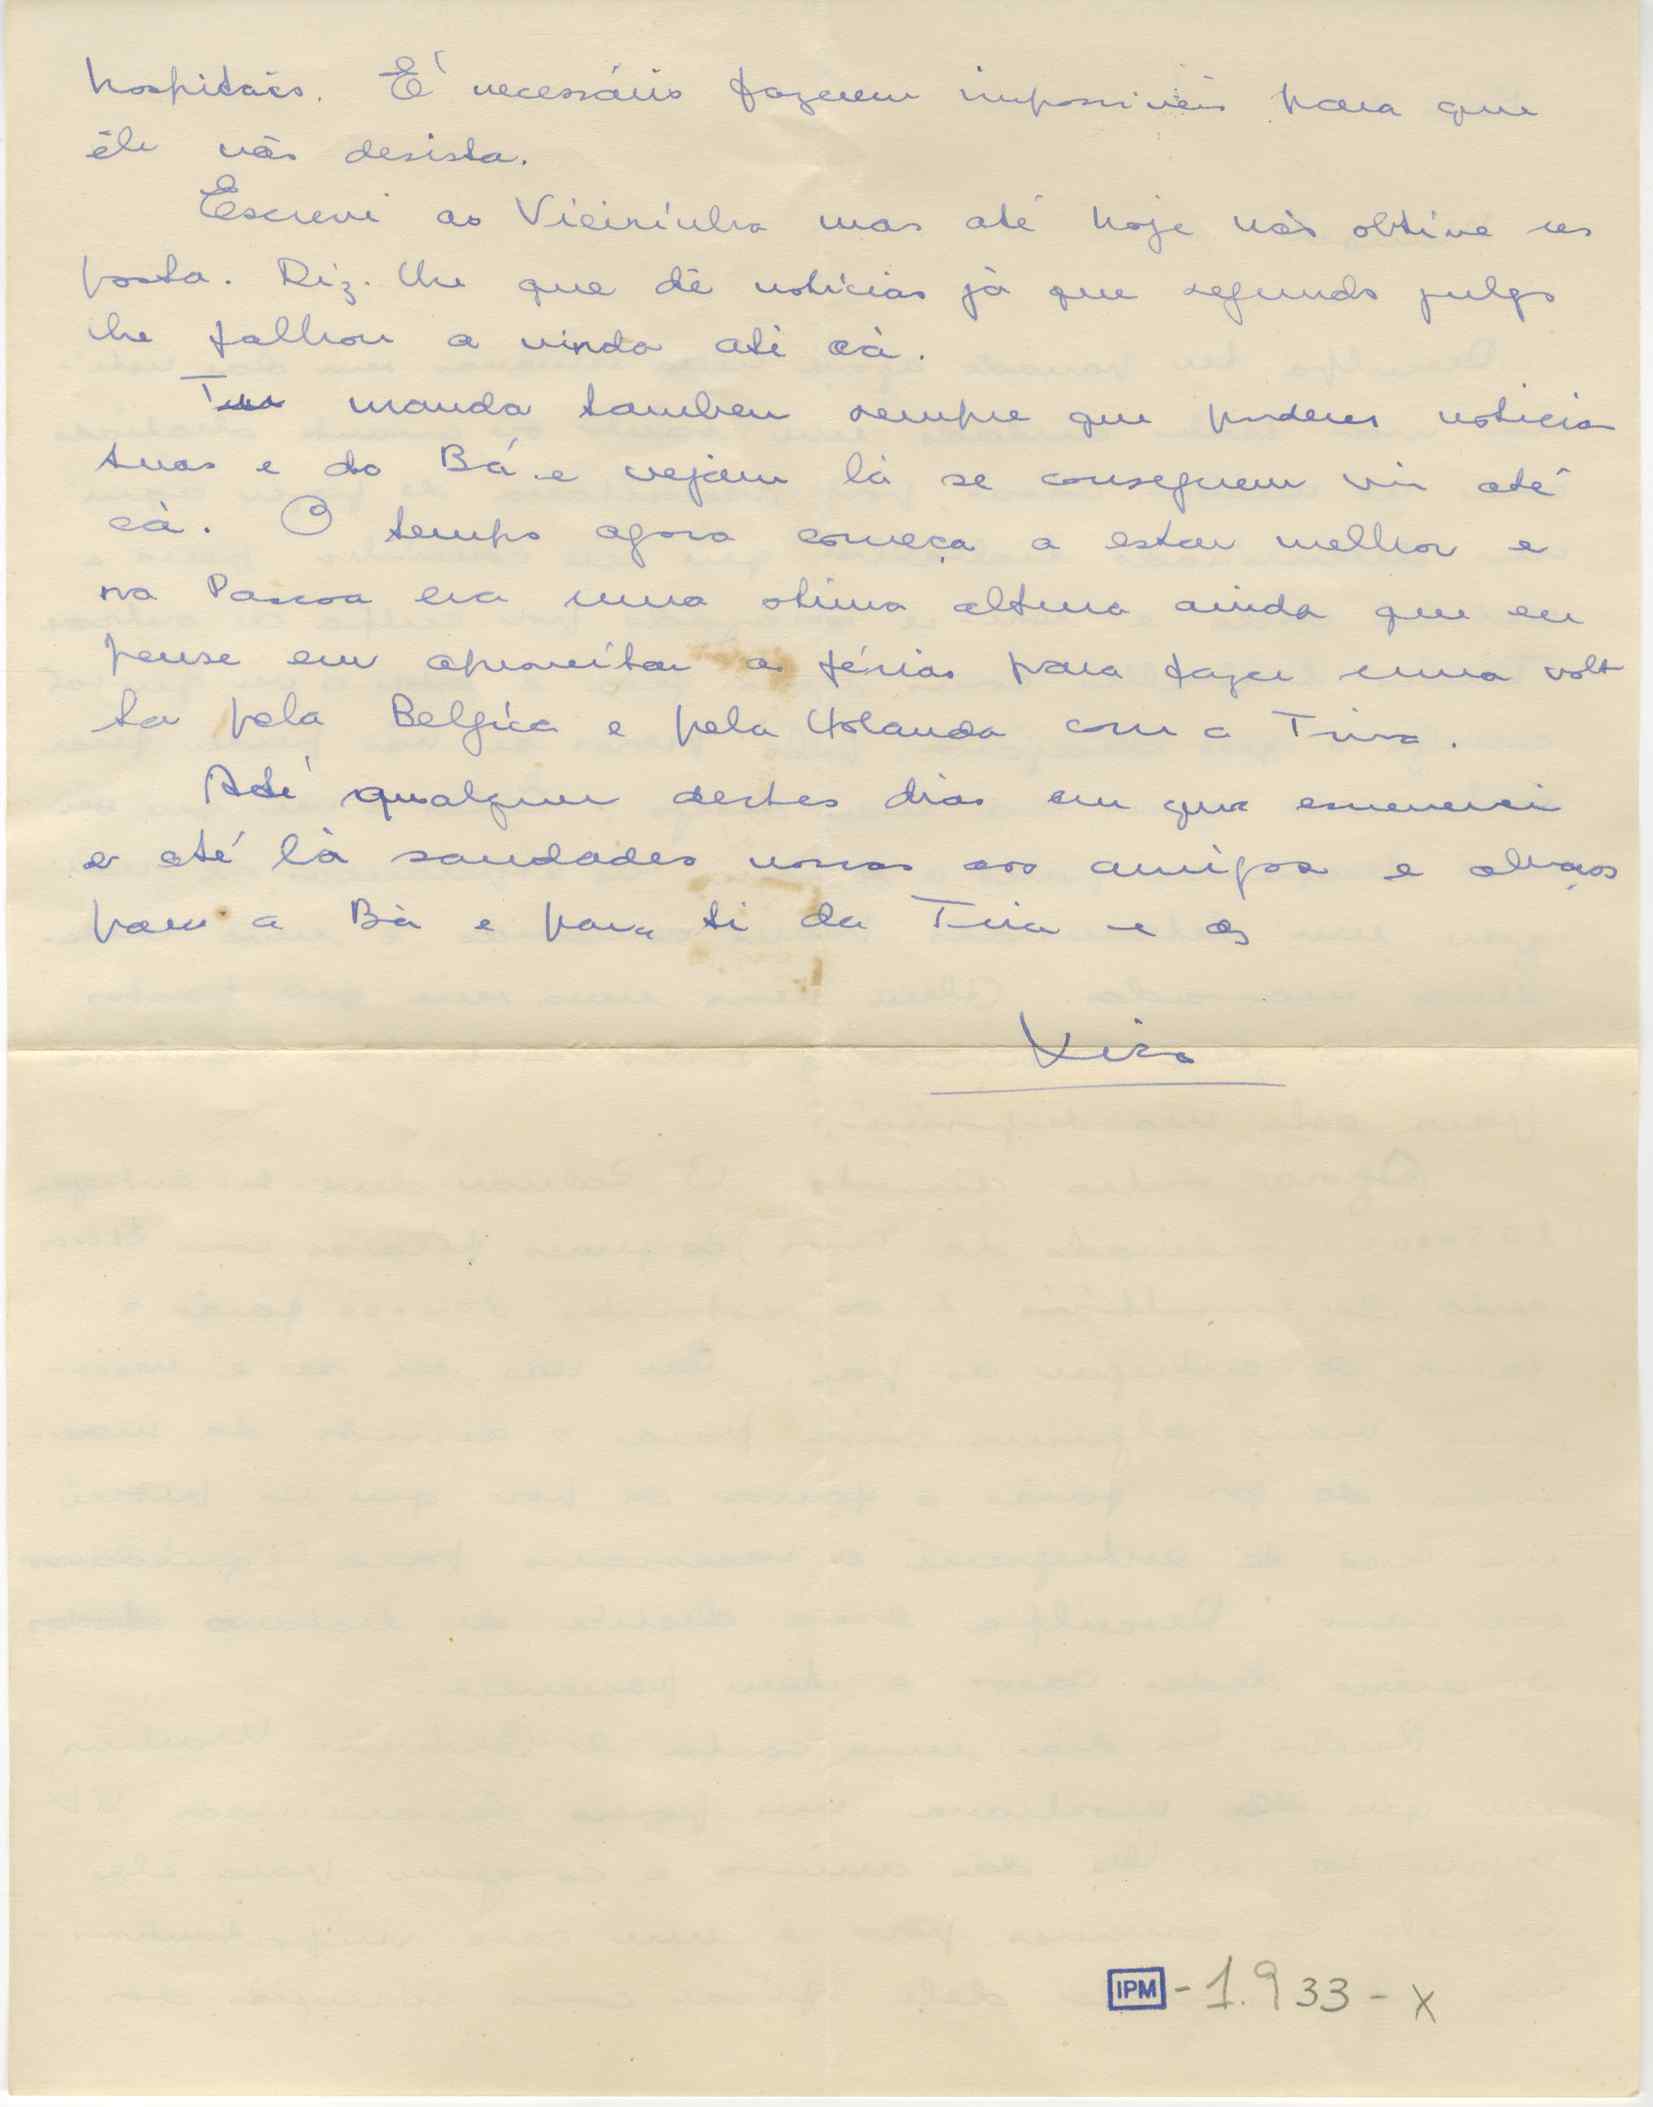 hospitais. É necessário fazerem impossiveis para que
êle não desista.
Escrevi ao Vieirinha mas até hoje não obtive res
posta. Diz-lhe que dê noticias já que segundo julgo
lhe falhou a vinda até cá.
manda tambem sempre que puderes noticia
tuas e do Bá e vejam lá se conseguem vir até
cá. O tempo agora começa a estar melhor e
na Pascoa era uma otima altura ainda que eu
pense em aproveitar as férias para fazer uma volt
ta pela Belgica e pela Holanda com a
Até qualquer destes dias em que escreverei
e até lá saudades nossas aos amigos e abraços
para a Bá e para ti da e do
IPM - 1.933 - X